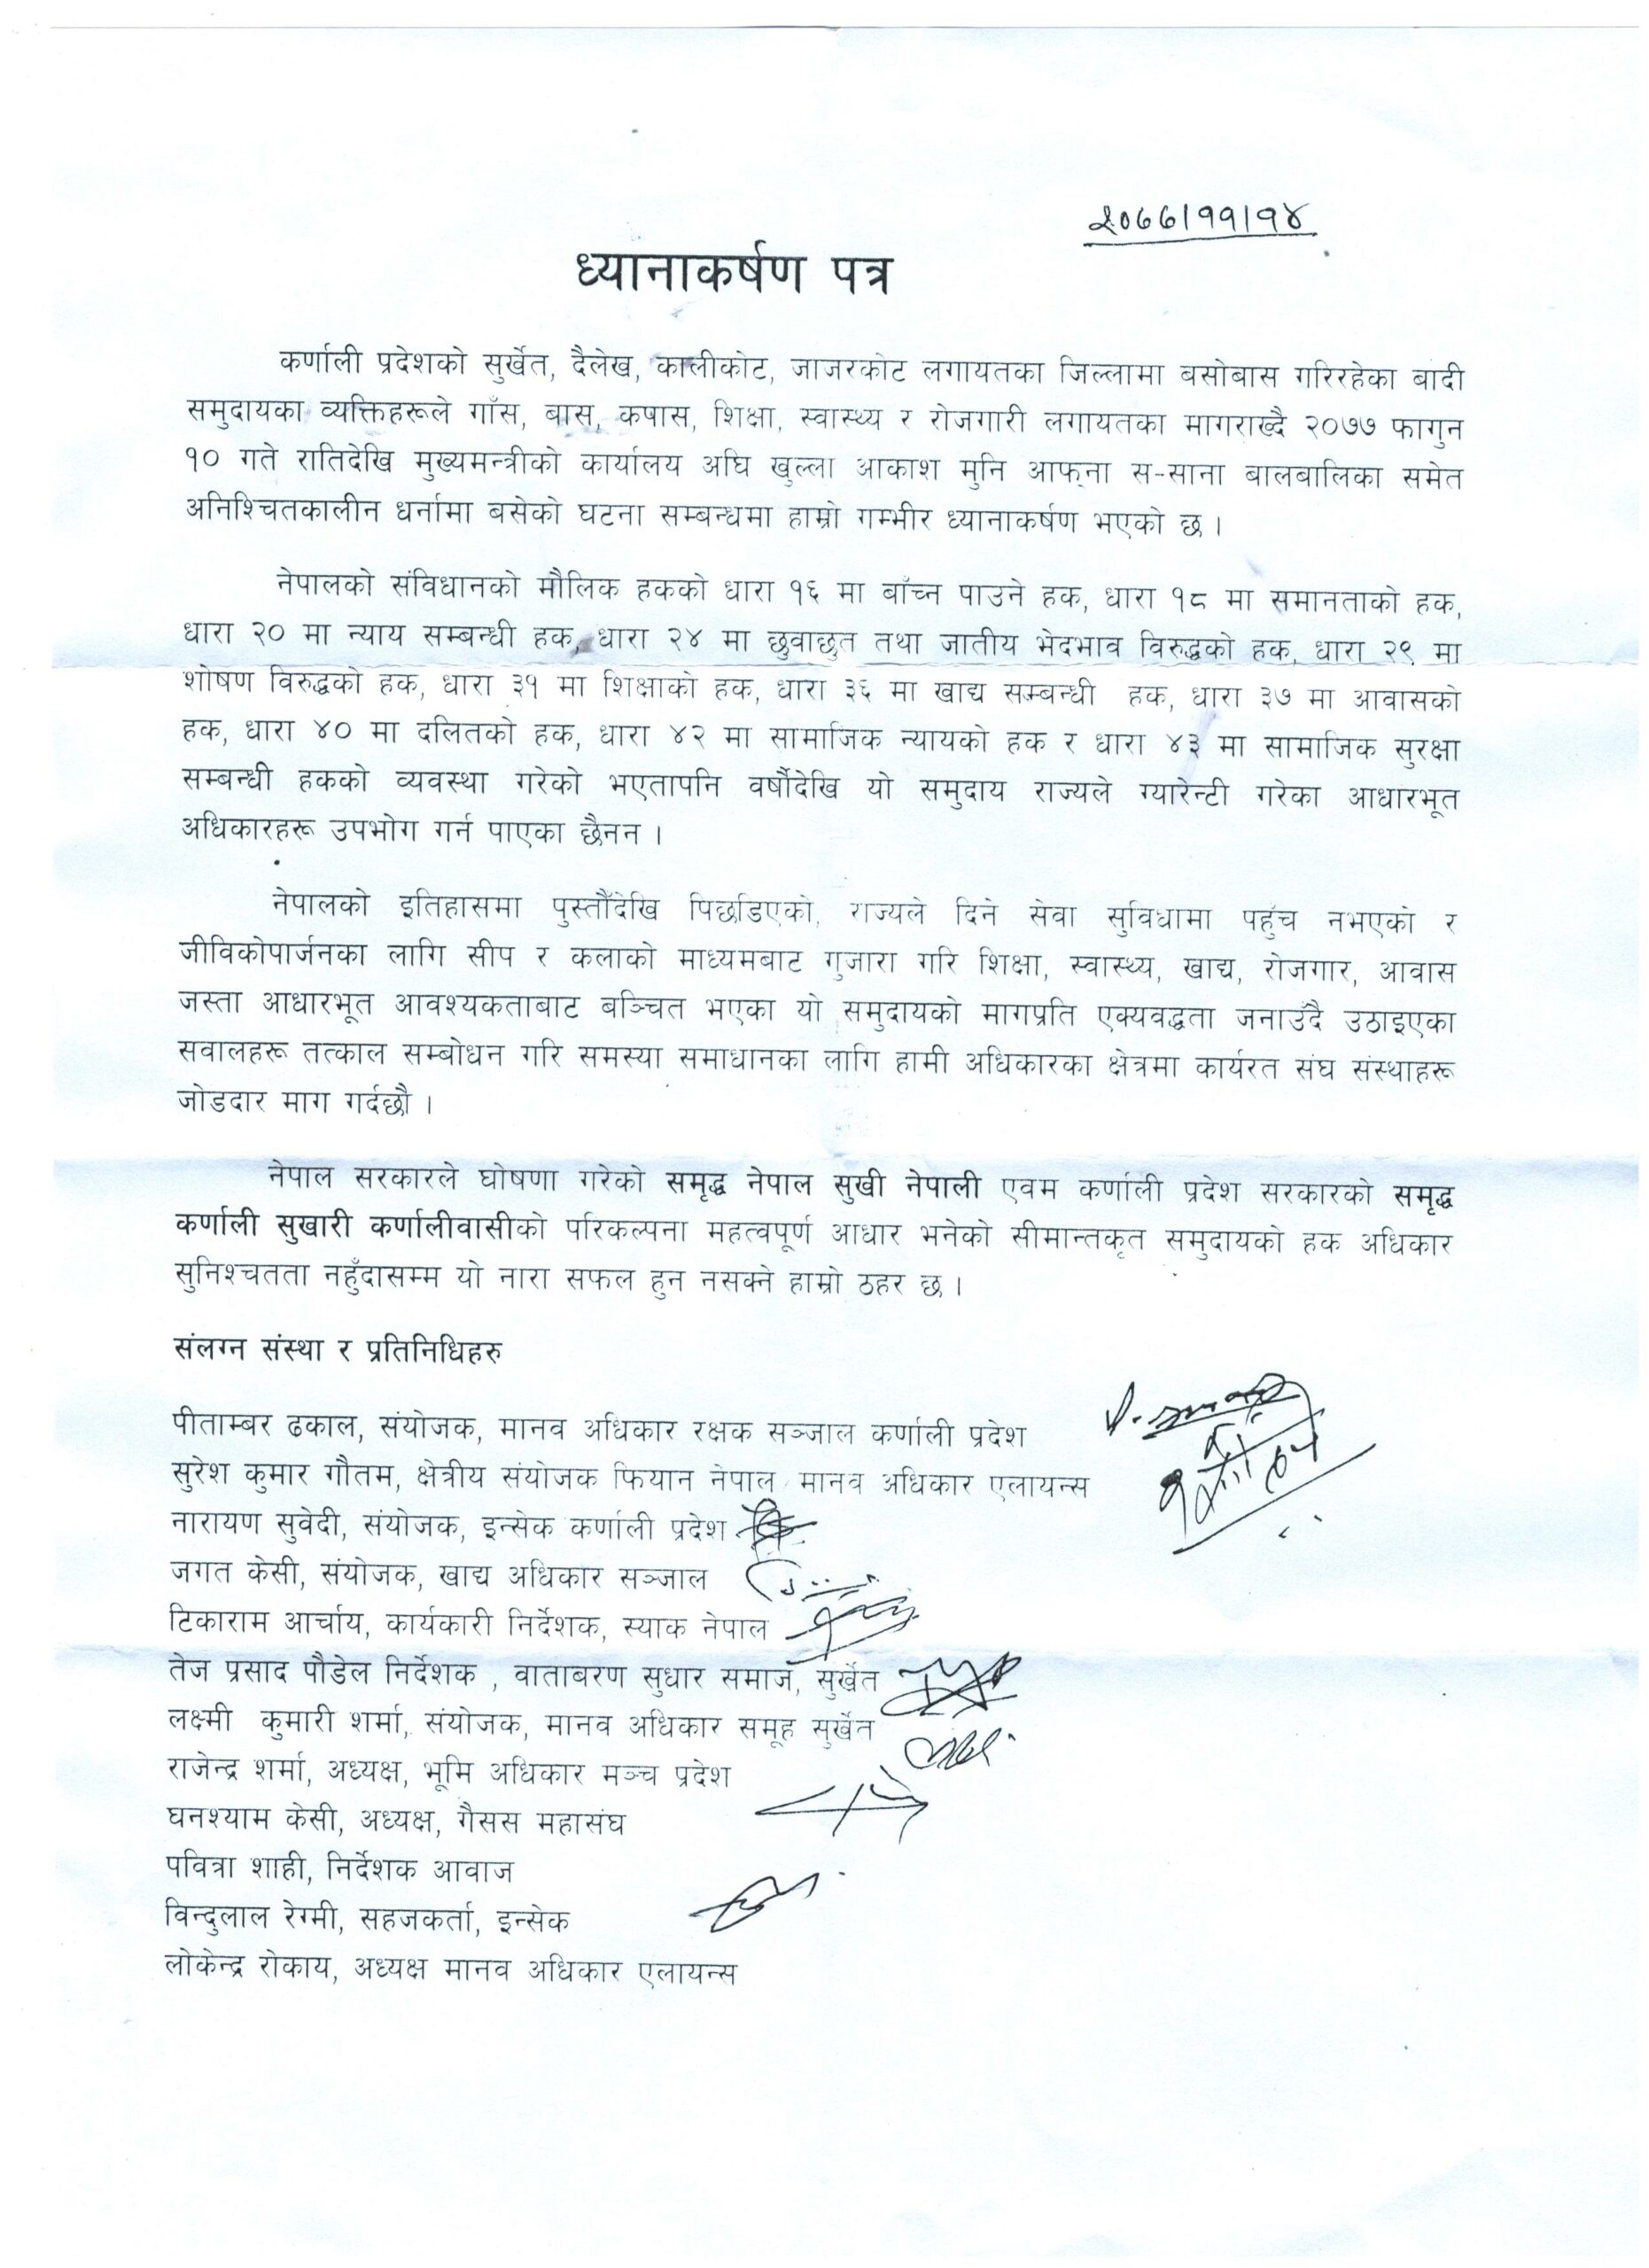 २०७७।११।१४
ध्यानाकर्षण पत्र
कर्णाली प्रदेशको सुर्खेत, दैलेख, कालीकोट, जाजरकोट लगायतका जिल्लामा बसोबास गरिरहेका बादी
समुदायका व्यक्तिहरूले गाँस, बास, कपास, शिक्षा, स्वास्थ्य र रोजगारी लगायतका मागराख्दै २०७७ फागुन
१० गते रातिदेखि मुख्यमन्त्रीको कार्यालय अघि खुल्ला आकाश मुनि आफ्ना स-साना बालबालिका समेत
अनिश्चितकालीन धर्नामा बसेको घटना सम्बन्धमा हाम्रो गम्भीर ध्यानाकर्षण भएको छ ।
नेपालको संविधानको मौलिक हकको धारा १६ मा बाँच्न पाउने हक, धारा १८ मा समानताको हक,
धारा २० मा न्याय सम्बन्धी हक, धारा २४ मा छुवाछुत तथा जातीय भेदभाव विरुद्धको हक, धारा २९ मा
शोषण विरुद्धको हक, धारा ३१ मा शिक्षाको हक, धारा ३६ मा खाद्य सम्बन्धी हक, धारा ३७ मा आवासको
हक, धारा ४० मा दलितको हक, धारा ४२ मा सामाजिक न्यायको हक र धारा ४३ मा सामाजिक सुरक्षा
सम्बन्धी हकको व्यवस्था गरेको भएतापनि वर्षौंदेखि यो समुदाय राज्यले ग्यारेन्टी गरेका आधारभूत
अधिकारहरू उपभोग गर्न पाएका छैनन ।
नेपालको इतिहासमा पुस्तौंदेखि पिछडिएको, राज्यले दिने सेवा सुविधामा पहुँच नभएको र
जीविकोपार्जनका लागि सीप र कलाको माध्यमबाट गुजारा गरि शिक्षा, स्वास्थ्य, खाद्य, रोजगार, आवास
जस्ता आधारभूत आवश्यकताबाट बञ्चित भएका यो समुदायको मागप्रति एक्यवद्धता जनाउँदै उठाइएका
सवालहरू तत्काल सम्बोधन गरि समस्या समाधानका लागि हामी अधिकारका क्षेत्रमा कार्यरत संघ संस्थाहरू
जोडदार माग गर्दछौं ।
नेपाल सरकारले घोषणा गरेको समृद्ध नेपाल सुखी नेपाली एवम कर्णाली प्रदेश सरकारको समृद्ध
कर्णाली सुखारी कर्णालीवासीको परिकल्पना महत्वपूर्ण आधार भनेको सीमान्तकृत समुदायको हक अधिकार
सुनिश्चतता नहुँदासम्म यो नारा सफल हुन नसक्ने हाम्रो ठहर छ ।
संलग्न संस्था र प्रतिनिधिहरु
पीताम्बर ढकाल, संयोजक, मानव अधिकार रक्षक सञ्जाल कर्णाली प्रदेश
सुरेश कुमार गौतम, क्षेत्रीय संयोजक फियान नेपाल मानव अधिकार एलायन्स
नारायण सुवेदी, संयोजक, इन्सेक कर्णाली प्रदेश
जगत केसी, संयोजक, खाद्य अधिकार सञ्जाल
टिकाराम आर्चाय, कार्यकारी निर्देशक, स्याक नेपाल
तेज प्रसाद पौडेल निर्देशक , वाताबरण सुधार समाज, सुर्खेत
लक्ष्मी कुमारी शर्मा, संयोजक, मानव अधिकार समूह सुर्खेत
राजेन्द्र शर्मा, अध्यक्ष, भूमि अधिकार मञ्च प्रदेश
घनश्याम केसी, अध्यक्ष, गैसस महासंघ
पवित्रा शाही, निर्देशक आवाज
विन्दुलाल रेग्मी, सहजकर्ता, इन्सेक
लोकेन्द्र रोकाय, अध्यक्ष मानव अधिकार एलायन्स